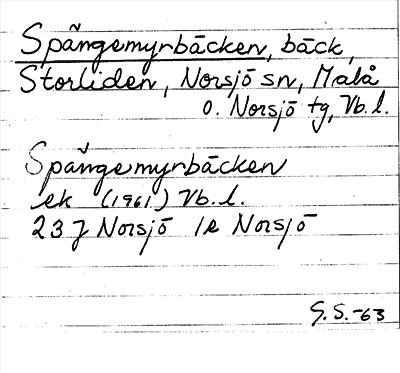 Spångemyrbäcken, bäck,
Storliden, Norsjö sn, Malå
o. Norsjö tg, Vb. l.
Spångemyrbäcken
ek (1961) Vb. l.
23 J Norsjö 1e Norsjö
G. S. -63